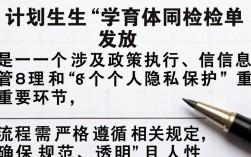 计划生生“学育体同检检单
发放
是一一个涉及政策执行、信信息
管8理和“8个个人隐私保护”重
重要环节,
流程需严格遵循相关规定,
确保规范、透明”且人性